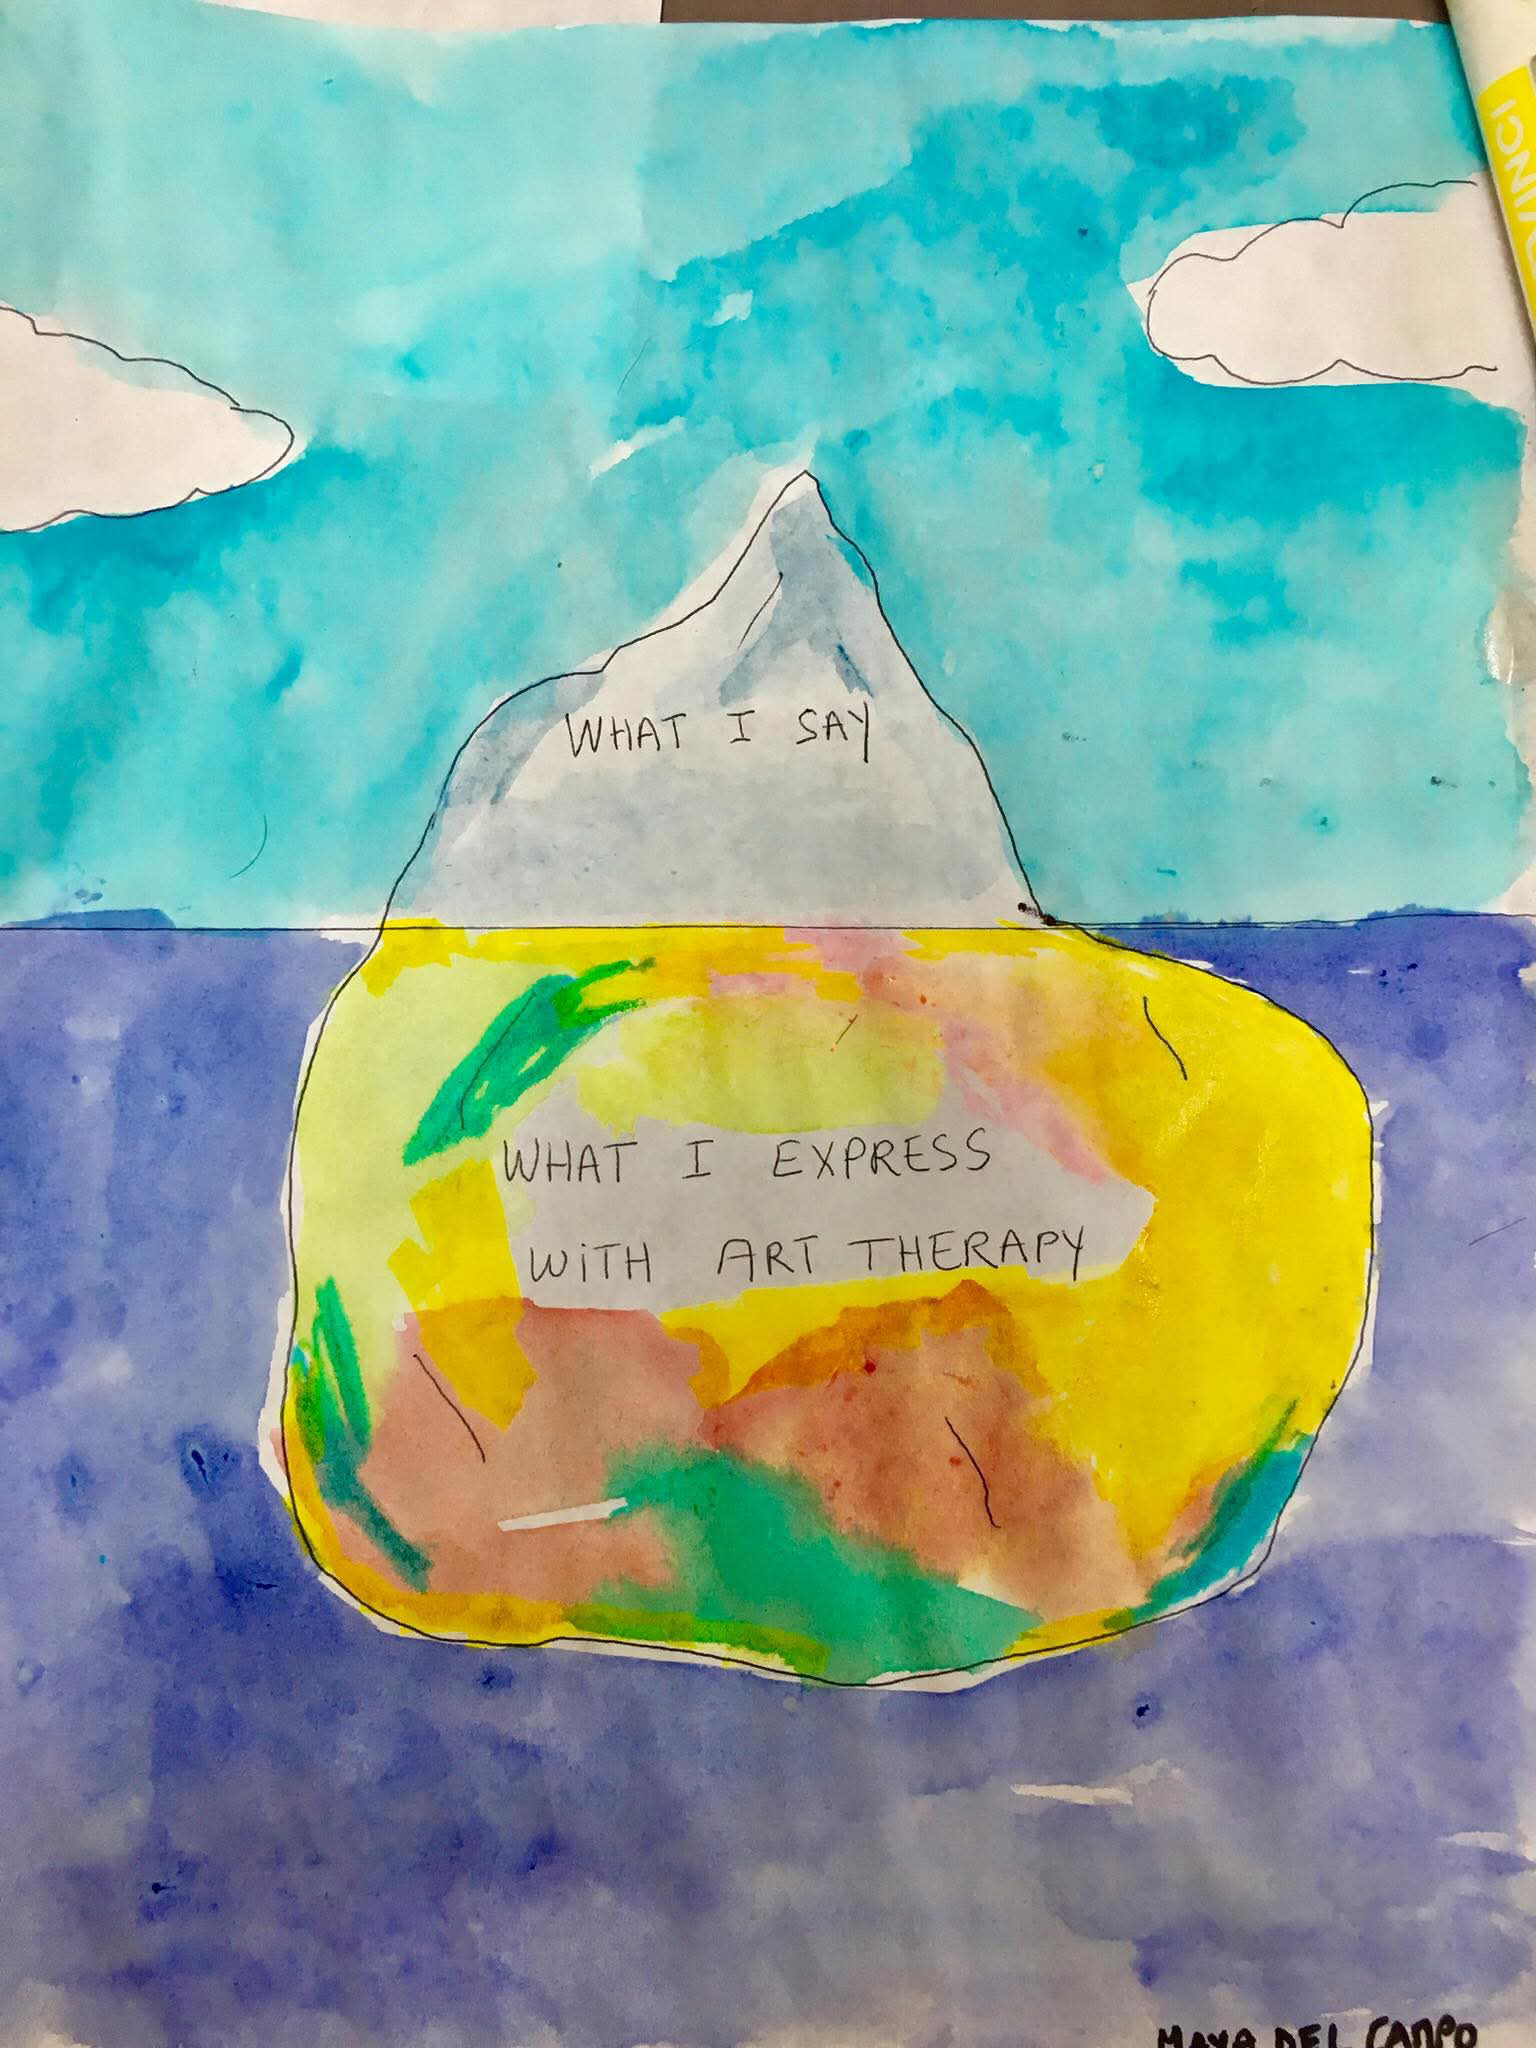 WHAT I SAY
WHAT I EXPRESS
WiTH ART THERAPY
MAYA DEL CAMPO